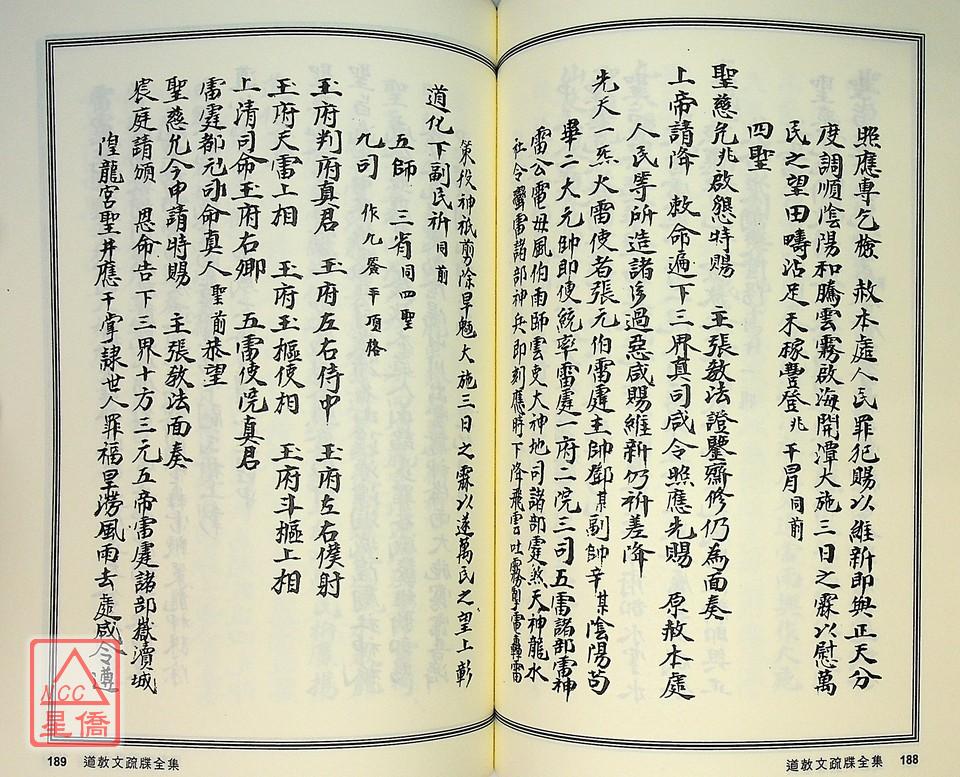 照應專乞檢　赦本處人民罪犯賜以維新即與正天分
度調順陰陽和騰雲霧啟海開潭大施三日之霖以慰萬
民之望田疇沾足禾稼豐登兆干冒同前
四聖
聖慈允兆啟懇特賜　主張教法證鑒齋修仍為面奏
上帝請降　敕命遍下三界真司咸令照應光賜　原赦本處
人民等所造諸過惡咸賜維新仍祈差降
先天一炁火雷使者張元伯雷霆主帥鄧某副帥辛某陰陽苟
畢二大元帥即使統率雷霆一府二院三司五雷諸部雷神
雷公電母風伯雨師雲吏大神地司諸部霆煞天神龍水
社令聲雷諸部神兵即刻應時下降飛雲吐霧掣電轟雷
策役神祇剪除旱魃大施三日之霖以遂萬民之望上彰
道化下副民祈同前
五師　三省同四聖
九司　作九簽平項格
玉府判府真君　玉府左右侍中　玉府左右僕射
玉府天雷上相　玉府玉樞使相　玉府斗樞上相
上清司命玉府右卿　五雷使院真君
雷霆都司元命真人聖前恭望
聖慈允今申請特賜　主張教法面奏
宸庭請頒　恩命告下三界十方三元五帝雷霆諸部嶽瀆城
隍龍宮聖井應干掌隸世人罪福旱澇風雨去處咸令遵
NCC
星僑
189　道教文疏牒全集
道教文疏牒全集　188